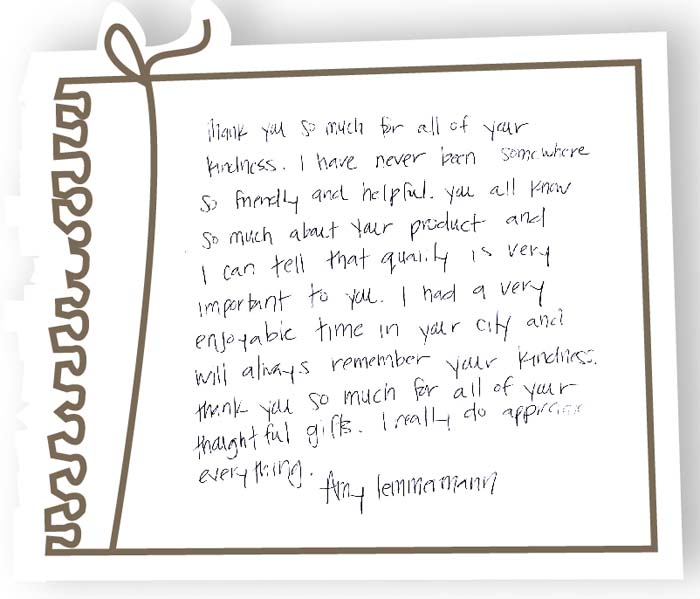 Thank you so much for all of your
kindness. I have never been somewhere
so friendly and helpful. you all know
so much about your product and
I can tell that quality is very
important to you. I had a very
enjoyable time in your city and
will always remember your kindness.
thank you so much for all of your
thoughtful gifts. I really do appreciate
everything. Amy Lemmermann